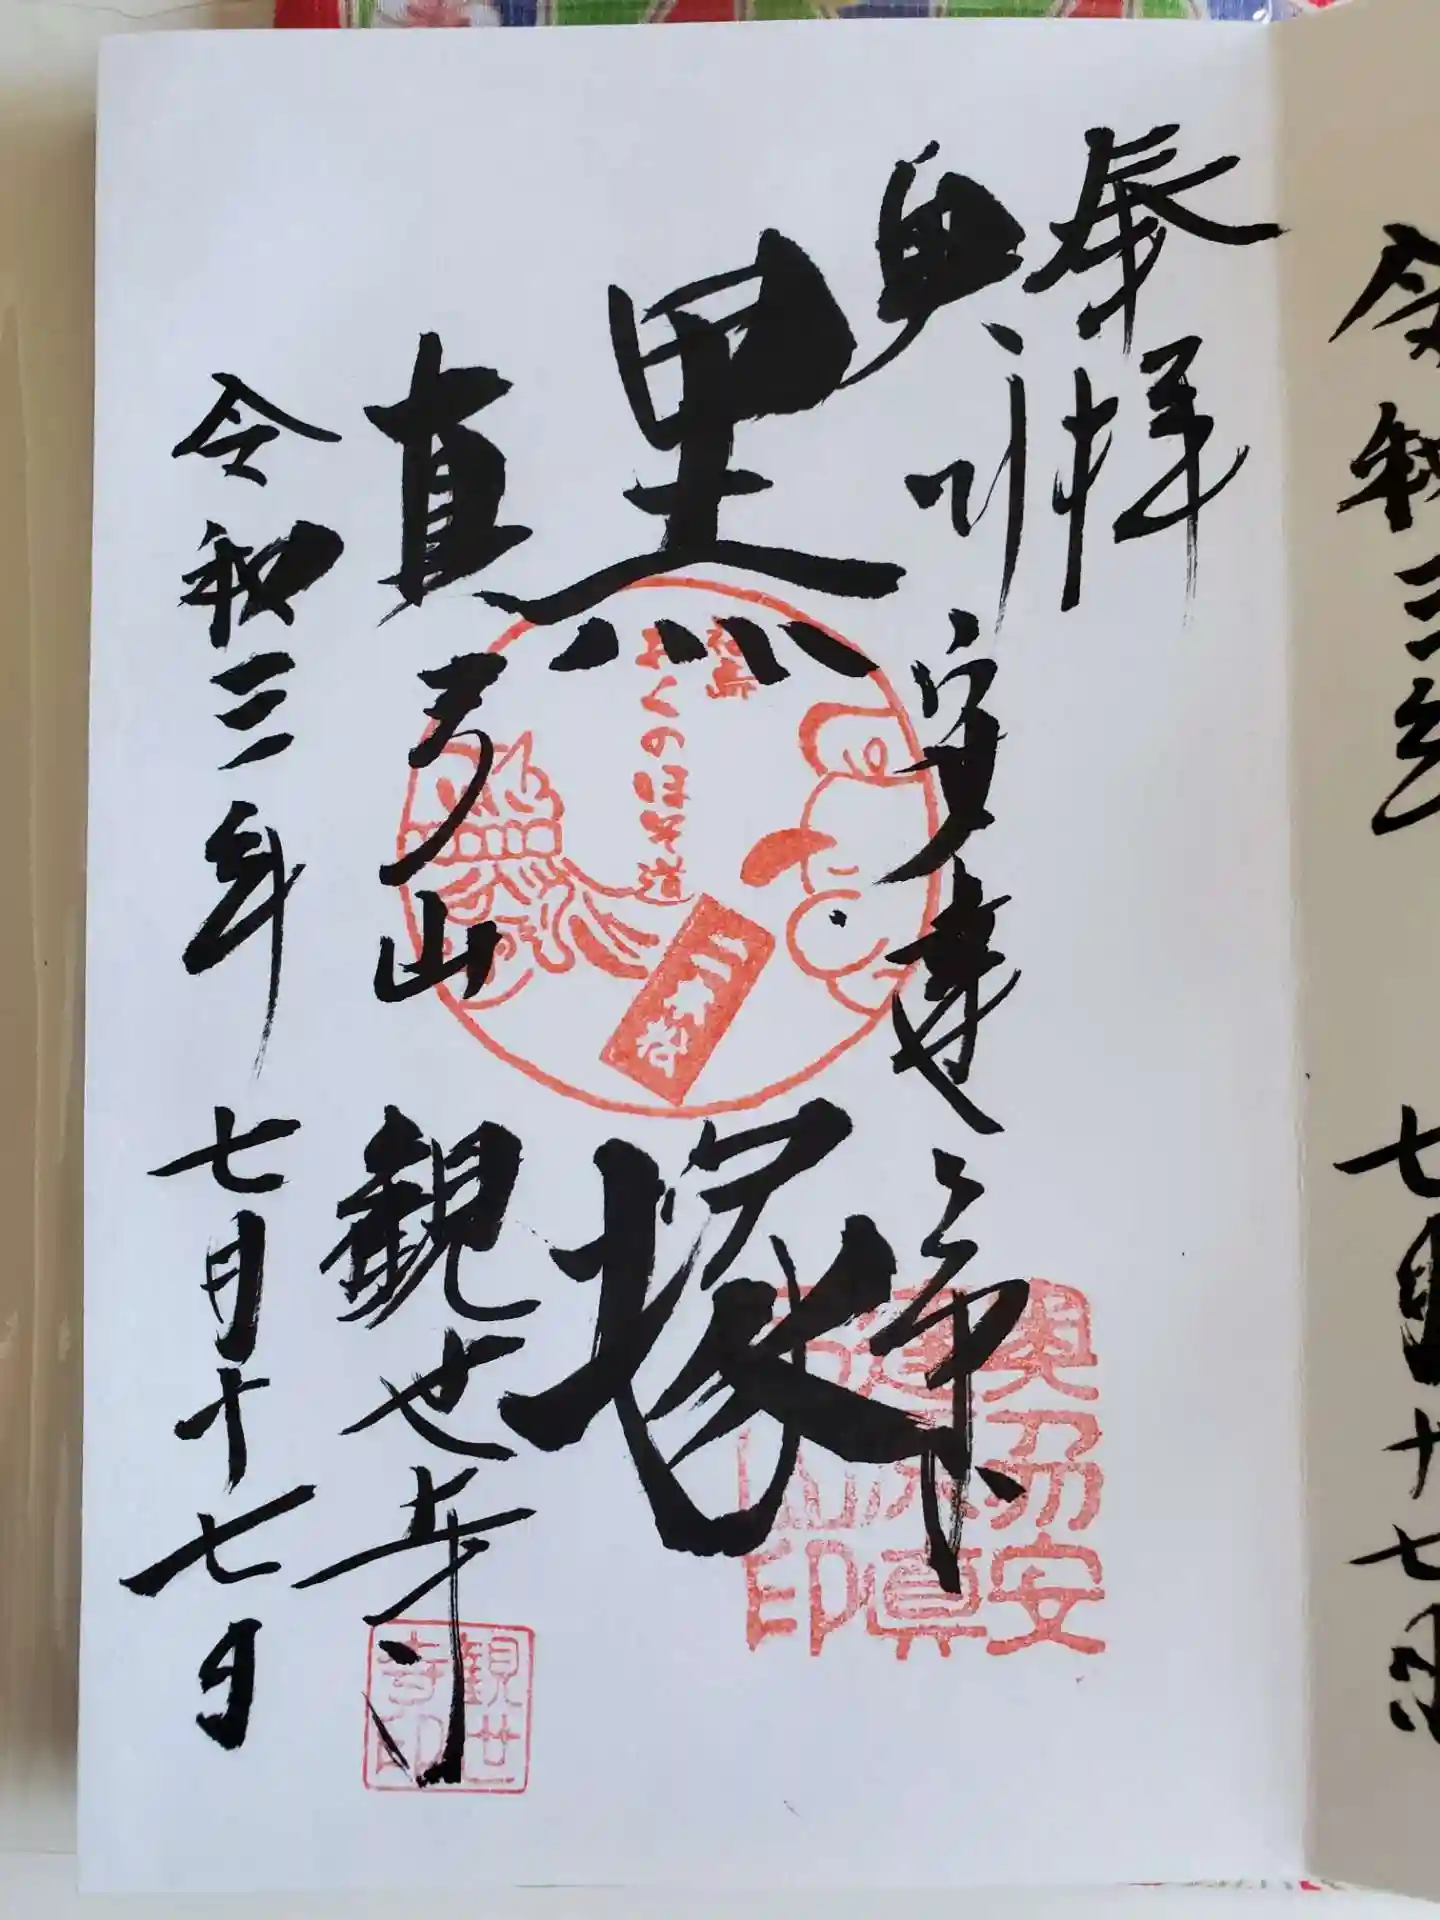 奉拝
奥州安達ヶ原
黒塚
真弓山
観世寺
令和三年
七月十七日
福島
おくのほそ道
二本松
奥州安
達ヶ原真
弓山印
観世
寺印
令和三年
七月十七日